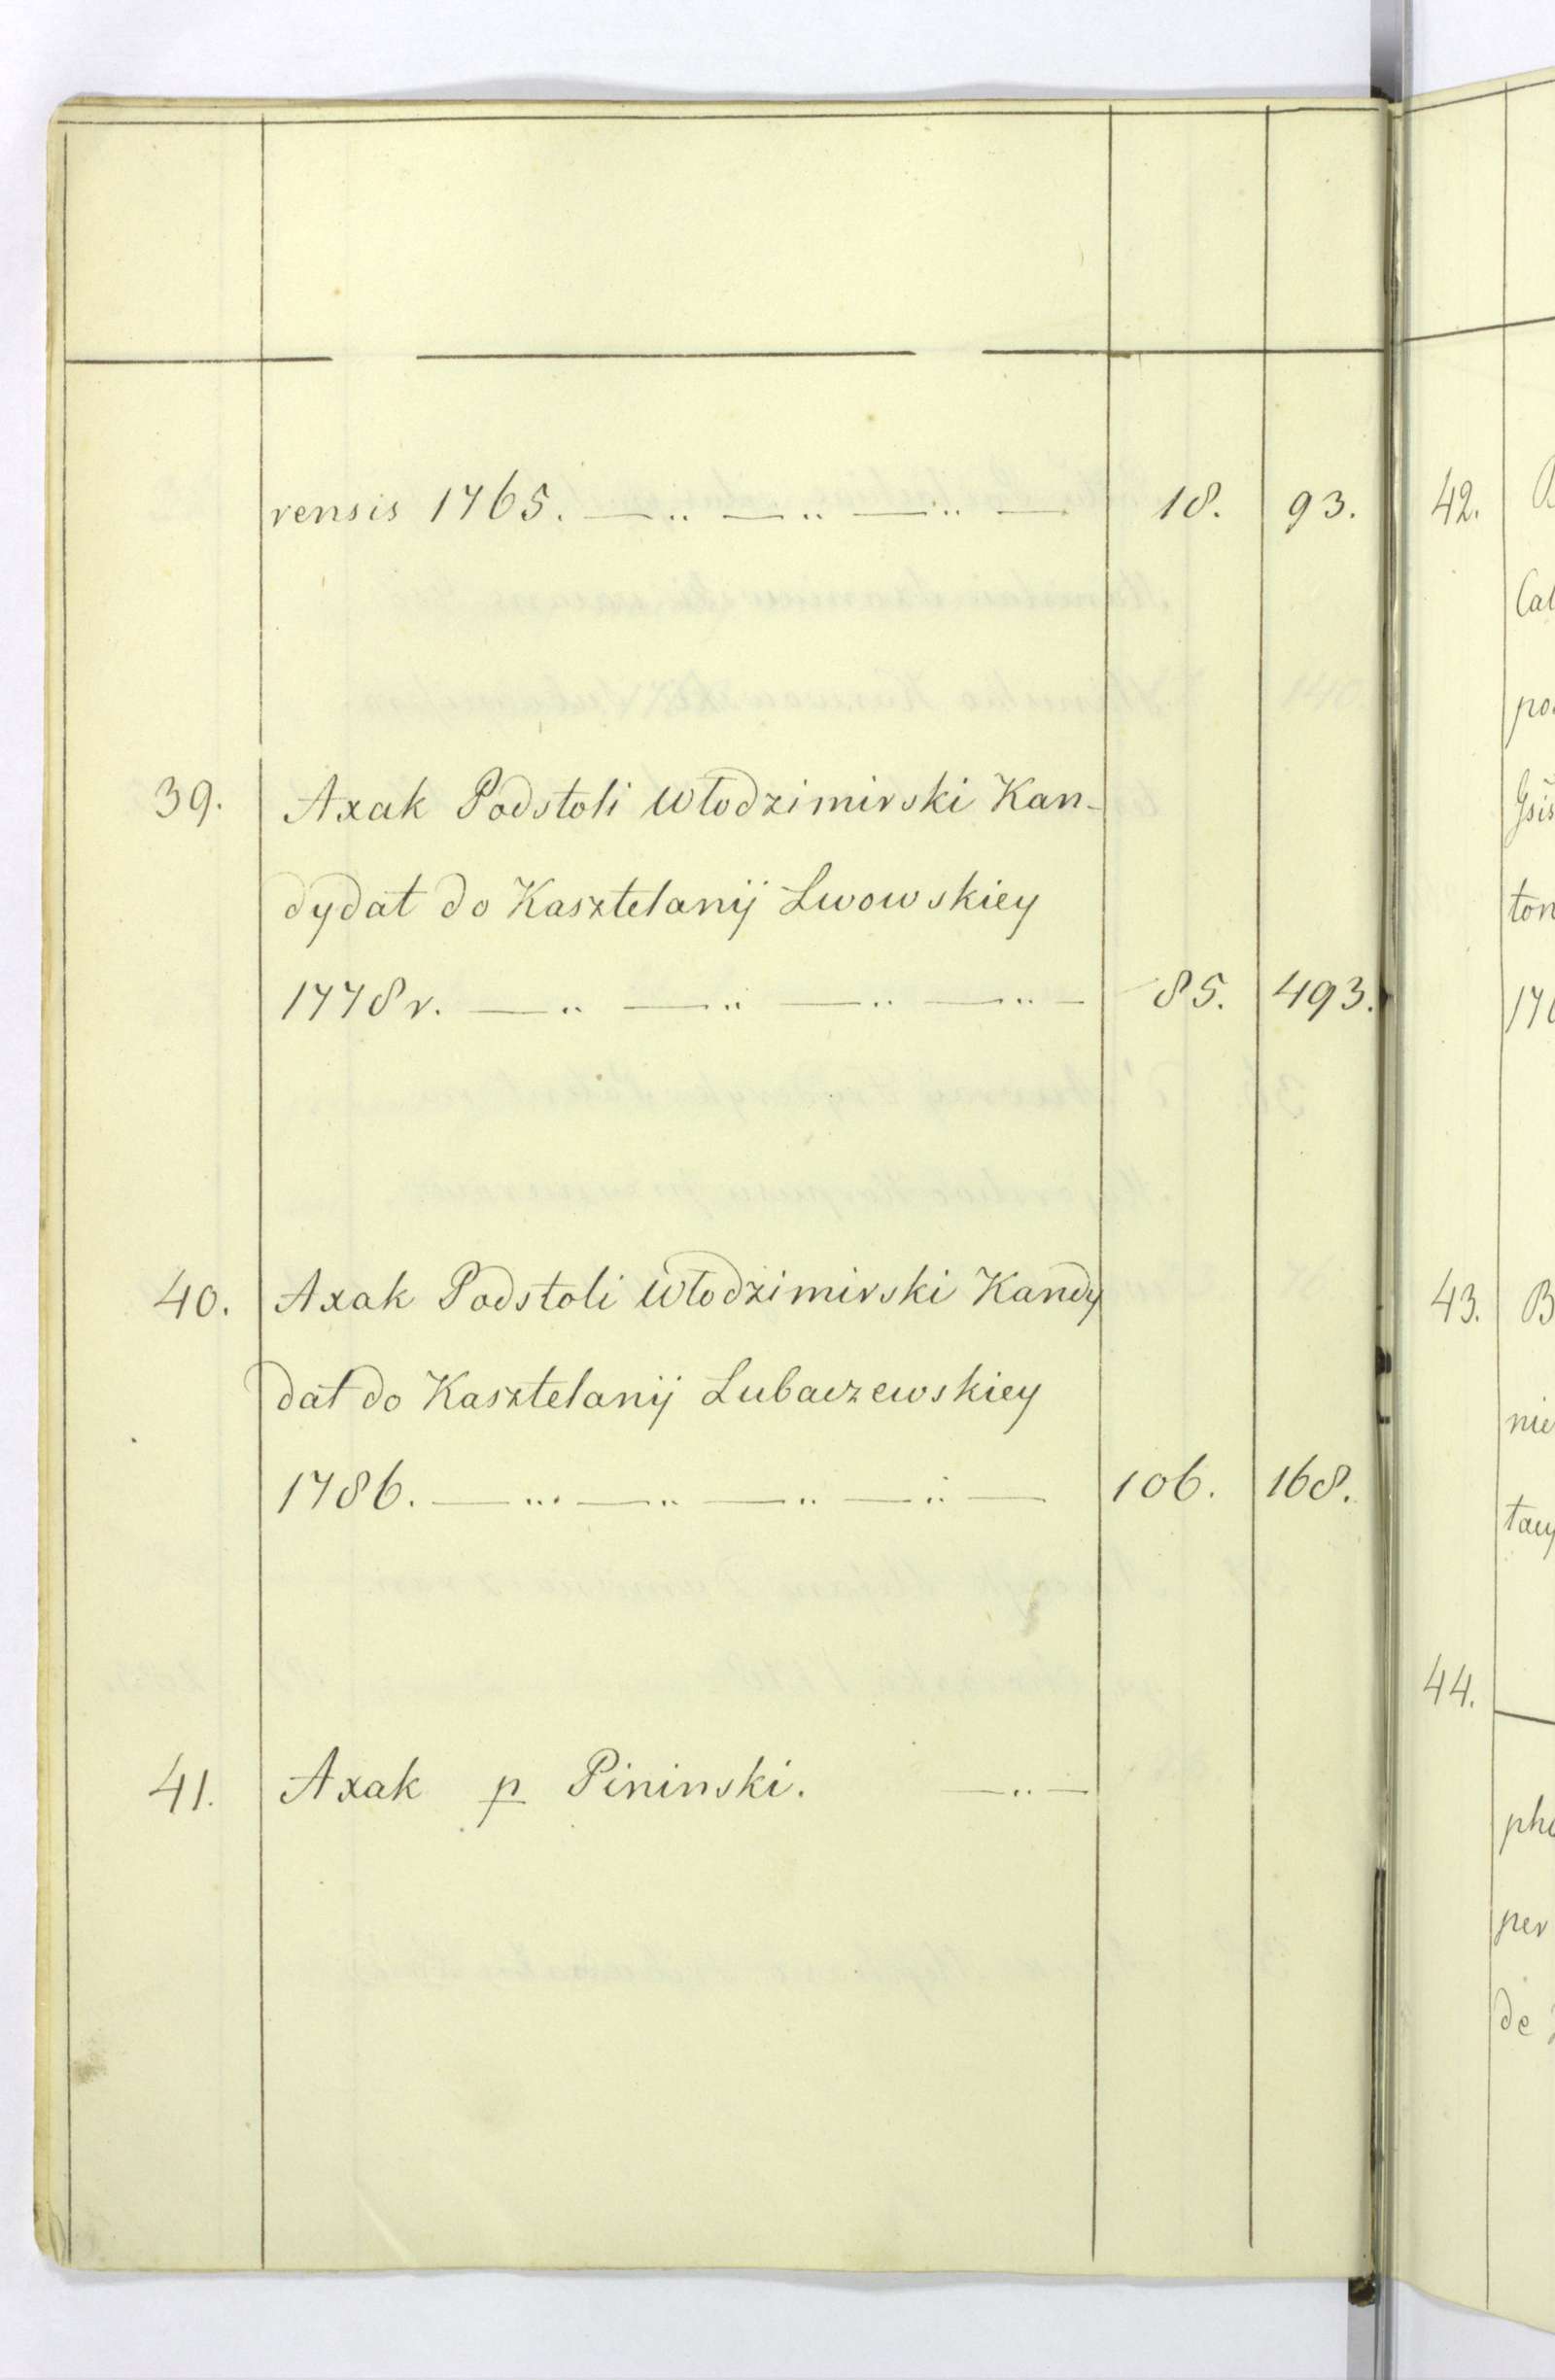 rensis 1765. — .. — .. — .. — 18. 93.
39. Axak Podstoli Włodzimirski Kan-
dydat do Kasztelanij Lwowskiey
1778 r. — .. — .. — .. — .. — 85. 493.
40. Axak Podstoli Włodzimirski Kandy
dat do Kasztelanij Lubaczewskiey
1786. — ... — .. — .. — .. — 106. 168.
41. Axak p Pininski. — .. —
42.
Cal
ton
43. B
nie
44.
per
de